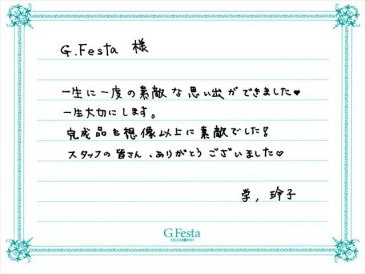 G.Festa 様
一生に一度の素敵な思い出ができました♥
一生大切にします。
完成品も想像以上に素敵でした!
スタッフの皆さん、ありがとうございました♡
学, 玲子
G.Festa
DIAMOND